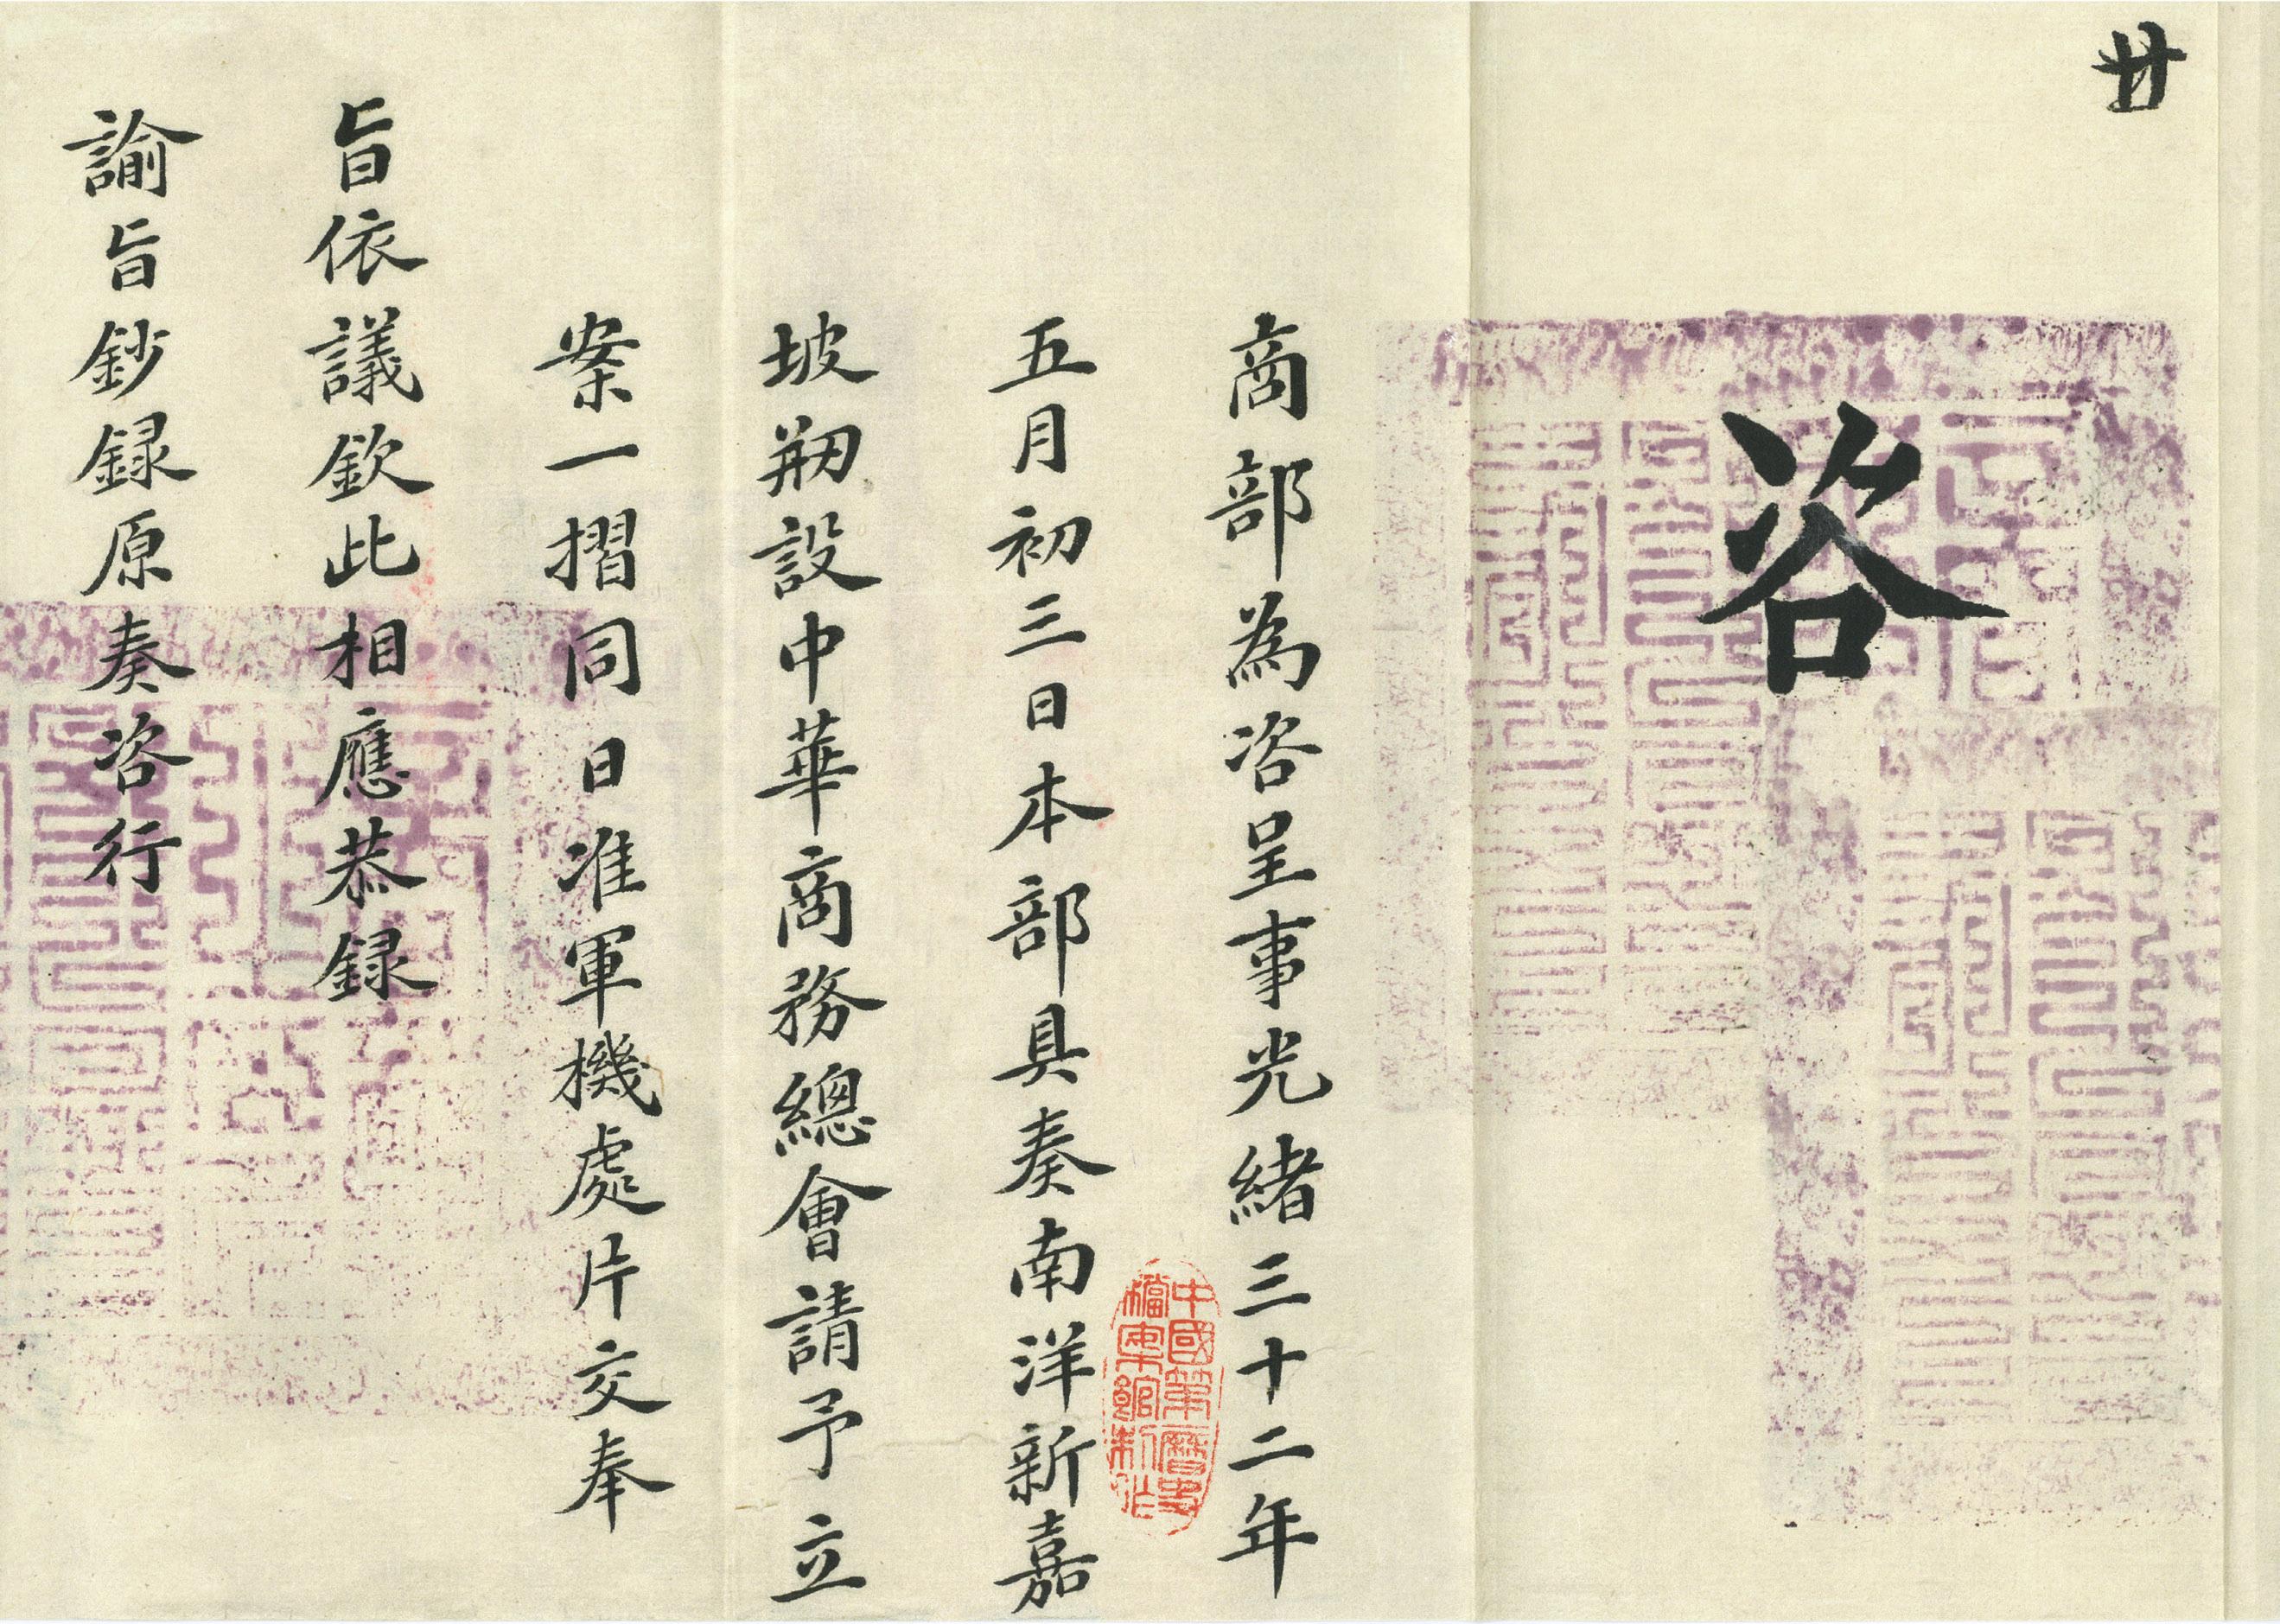 廿
咨
商部為咨呈事光緒三十二年
五月初三日本部具奏南洋新嘉
坡剏設中華商務總會請予立
案一摺同日准軍機處片交奉
旨依議欽此相應恭録
諭旨鈔録原奏咨行
中國第一歷史
檔案館制作